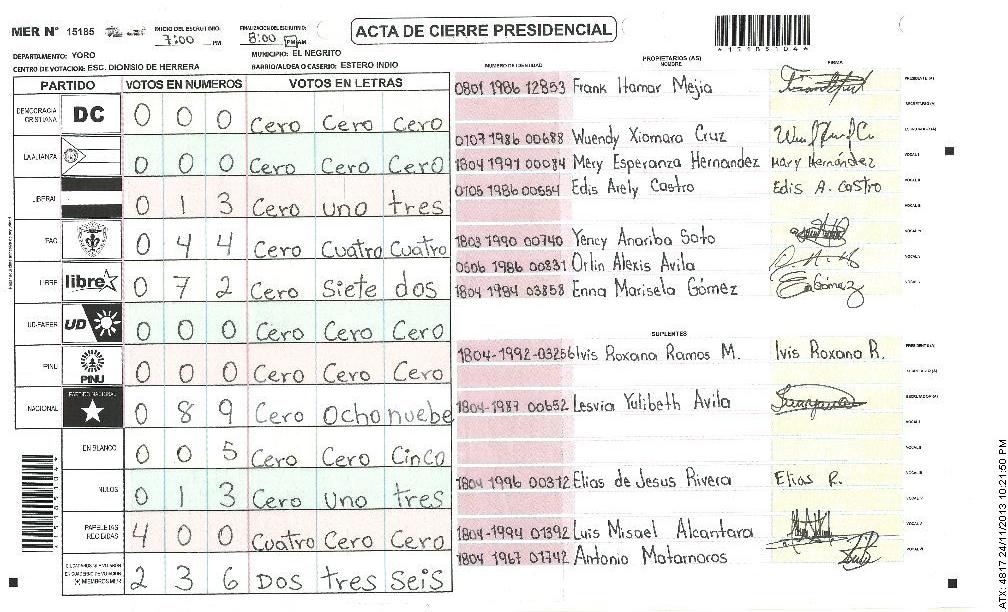 MER Nº 15185
INICIO DEL ESCRUTINIO: 7:00 PM
FINALIZACION DEL ESCRUTINIO: 8:00 PM AM
ACTA DE CIERRE PRESIDENCIAL
*15185104*
DEPARTAMENTO: YORO
MUNICIPIO: EL NEGRITO
CENTRO DE VOTACION: ESC. DIONSIO DE HERRERA
BARRIO/ALDEA O CASERIO: ESTERO INDIO
PARTIDO VOTOS EN NUMEROS VOTOS EN LETRAS
DEMOCRACIA CRISTIANA DC 0 0 0 Cero Cero Cero
LA ALIANZA 0 0 0 Cero Cero Cero
LIBERAL 0 1 3 Cero uno tres
PAC 0 4 4 Cero Cuatro Cuatro
LIBRE libre 0 7 2 Cero Siete dos
UD-FAPER UD 0 0 0 Cero Cero Cero
PINU PINU 0 0 0 Cero Cero Cero
NACIONAL PARTIDO NACIONAL 0 8 9 Cero Ocho nuebe
EN BLANCO 0 0 5 Cero Cero Cinco
NULOS 0 1 3 Cero Uno tres
PAPELETAS RECIBIDAS 4 0 0 Cuatro Cero Cero
(+) MIEMBROS MER 2 3 6 Dos tres Seis
PROPIETARIOS (AS)
NUMERO DE IDENTIDAD NOMBRE FIRMA
0801 1986 12853 Frank Itamar Mejia PRESIDENTE (A)
SECRETARIO (A)
0107 1986 00688 Wuendy Xiomara Cruz
1804 1991 00084 Mery Esperanza Hernandez Mary Hernández VOCAL I
0105 1986 00554 Edis Arely Castro Edis A. Castro VOCAL II
VOCAL III
1803 1990 00740 Yency Anariba Soto VOCAL IV
0506 1986 00831 Orlin Alexis Avila VOCAL V
1804 1984 03858 Enna Marisela Gómez E Gómez
SUPLENTES
1804-1992-03256 Ivis Roxana Ramos M. Ivis Roxana R. PRESIDENTE (A)
1804-1987 00652 Lesvia Yulibeth Avila
VOCAL I
VOCAL II
1804 1996 00312 Elias de Jesus Rivera Elias R.
1804-1994 01392 Luis Misael Alcantara
1804 1967 01742 Antonio Matamoros
ATX: 4817 24/11/2013 10:21:50 PM